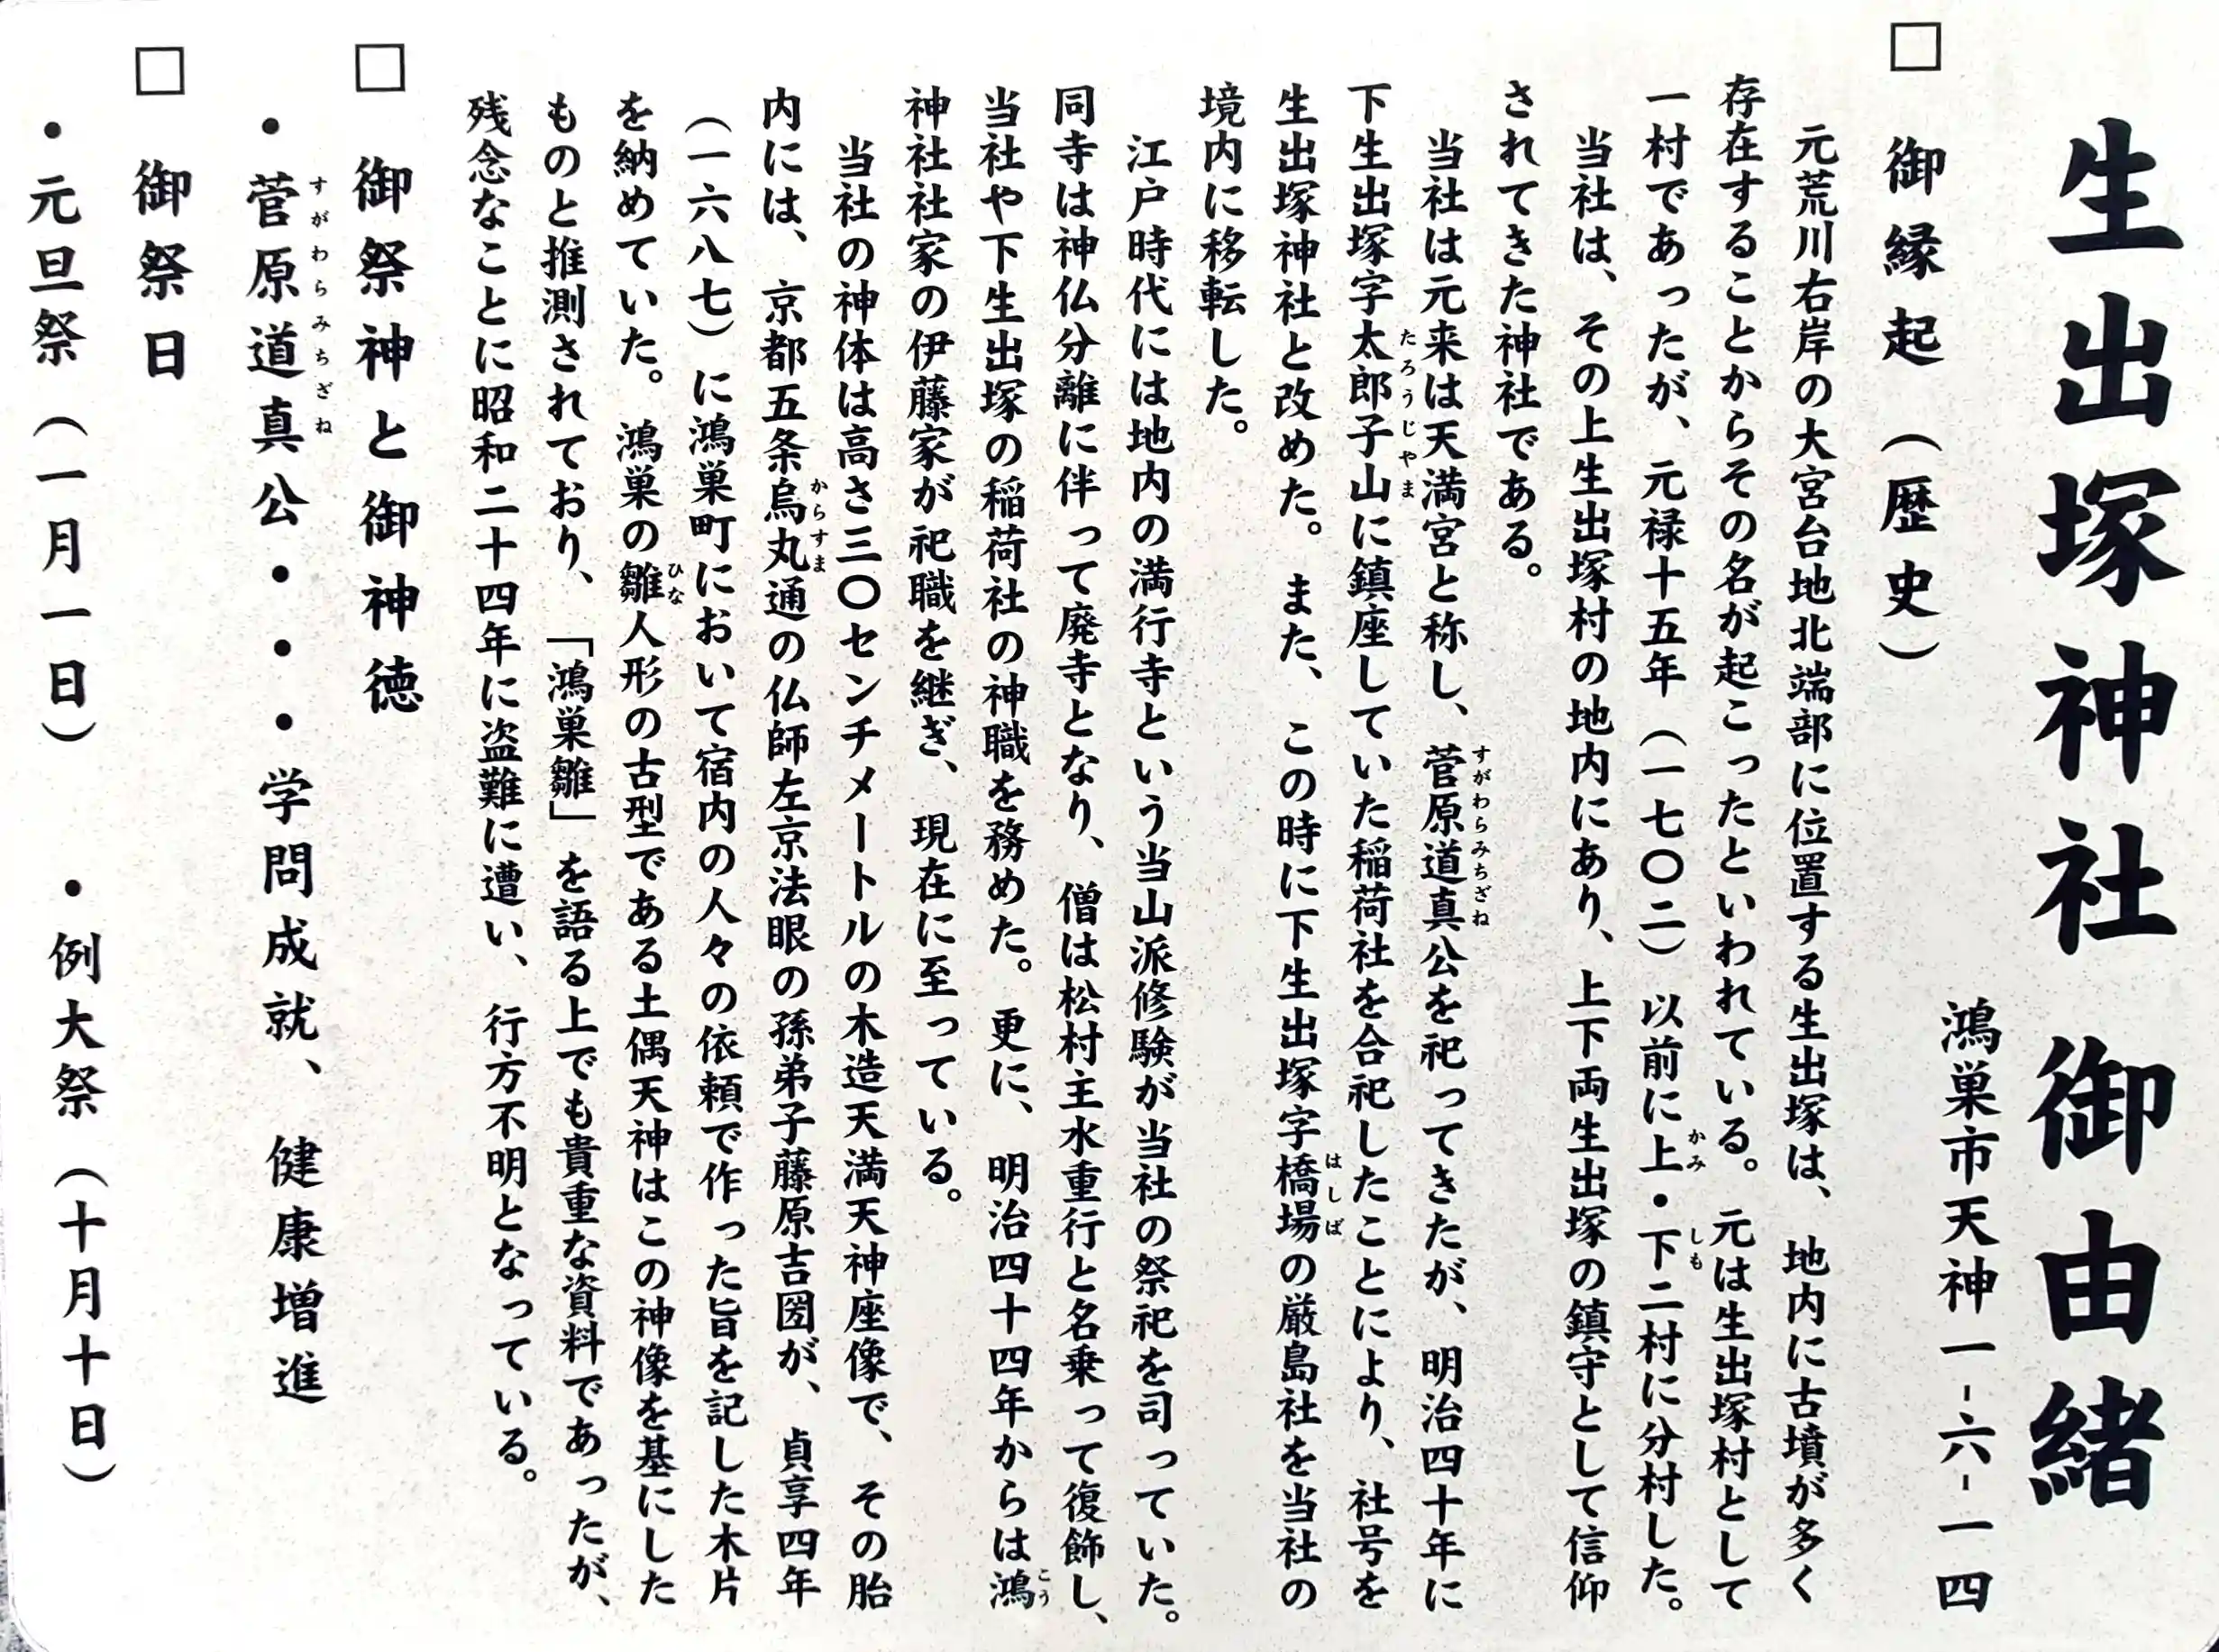 生出塚神社 御由緒
鴻巣市天神一-六-一四
□ 御縁起（歴史）
元荒川右岸の大宮台地北端部に位置する生出塚は、地内に古墳が多く
存在することからその名が起こったといわれている。元は生出塚村として
一村であったが、元禄十五年（一七〇二）以前に上・下二村に分村した。
かみ しも
当社は、その上生出塚村の地内にあり、上下両生出塚の鎮守として信仰
されてきた神社である。
当社は元来は天満宮と称し、菅原道真公を祀ってきたが、明治四十年に
すがわらみちざね
下生出塚字太郎子山に鎮座していた稲荷社を合祀したことにより、社号を
たろうじやま
生出塚神社と改めた。また、この時に下生出塚字橋場の厳島社を当社の
はしば
境内に移転した。
江戸時代には地内の満行寺という当山派修験が当社の祭祀を司っていた。
同寺は神仏分離に伴って廃寺となり、僧は松村主水重行と名乗って復飾し、
当社や下生出塚の稲荷社の神職を務めた。更に、明治四十四年からは鴻
こう
神社社家の伊藤家が祀職を継ぎ、現在に至っている。
当社の神体は高さ三〇センチメートルの木造天満天神座像で、その胎
内には、京都五条烏丸通の仏師左京法眼の孫弟子藤原吉圀が、貞享四年
からすま
（一六八七）に鴻巣町において宿内の人々の依頼で作った旨を記した木片
を納めていた。鴻巣の雛人形の古型である土偶天神はこの神像を基にした
ひな
ものと推測されており、「鴻巣雛」を語る上でも貴重な資料であったが、
残念なことに昭和二十四年に盗難に遭い、行方不明となっている。
□ 御祭神と御神徳
・菅原道真公・・・学問成就、健康増進
すがわらみちざね
□ 御祭日
・元旦祭（一月一日） ・例大祭（十月十日）